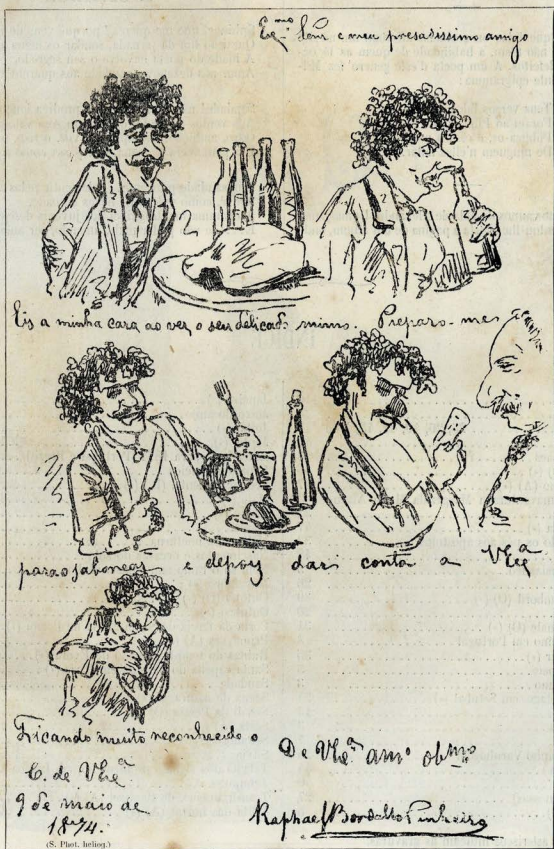 Exmo Senr e meu presadissimo amigo
Eis a minha cara ao ver o seu delicado mimo. Preparo-me
para o saborear e depois dar conta a V Exa
Ficando muito reconhecido o
De V Exa amo obmo
C. de V Exa
9 de maio de
1874.
Raphael Bordallo Pinheiro
(S. Phot. heliog.)